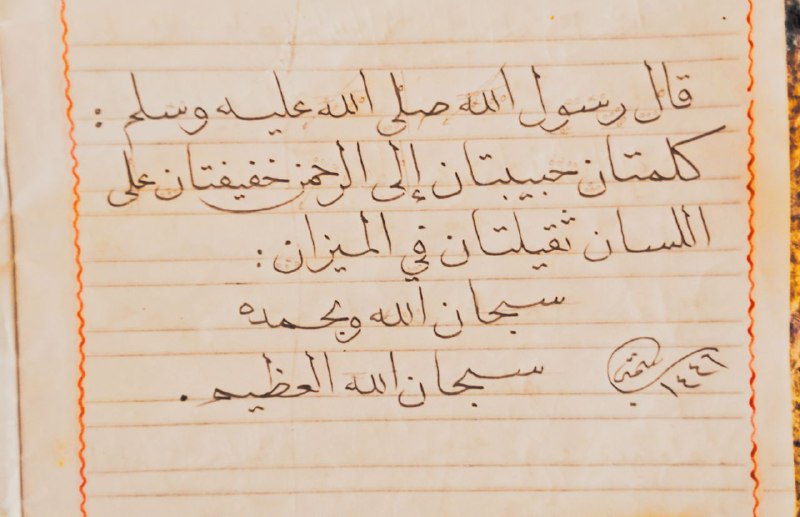 قال رسول الله صلى الله عليه وسلم :
كلمتان حبيبتان إلى الرحمن خفيفتان على
اللسان ثقيلتان في الميزان :
سبحان الله وبحمده
سبحان الله العظيم .
١٤٤٦